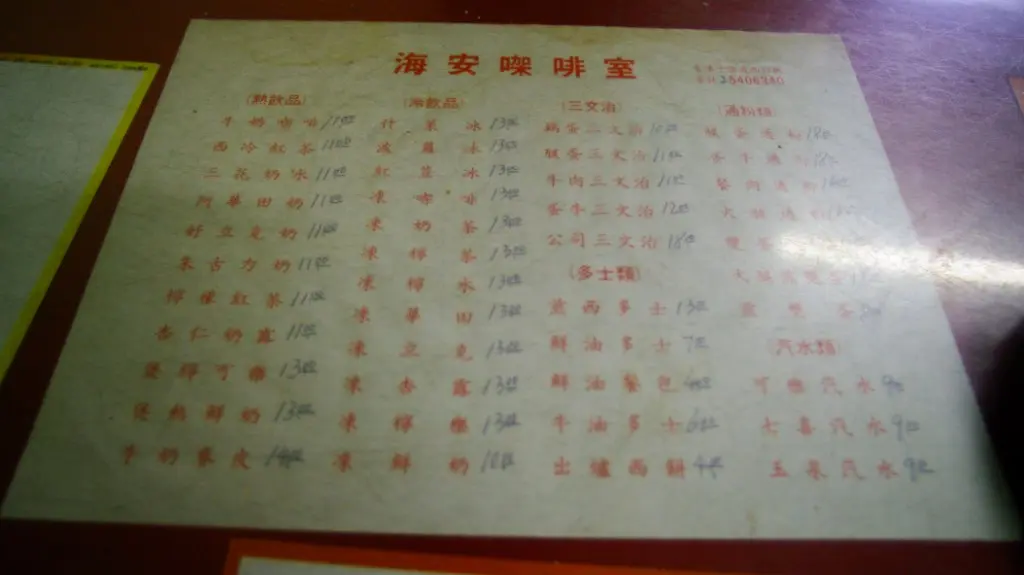 海安㗎啡室
25406340
(熱飲品)
牛奶咖啡 11元
西冷紅茶 11元
三花奶冰 11元
阿華田奶 11元
好立克奶 11元
朱古力奶 11元
檸檬紅茶 11元
杏仁奶露 11元
煲檸可樂 13元
煲熱鮮奶 13元
牛奶麥皮 14元
(冷飲品)
什菓冰 13元
波蘿冰 13元
紅荳冰 13元
凍咖啡 13元
凍奶茶 13元
凍檸茶 13元
凍檸水 13元
凍華田 13元
凍立克 13元
凍杏露 13元
凍檸樂 13元
凍鮮奶
(三文治)
腿蛋三文治 11元
牛肉三文治 11元
蛋牛三文治 12元
公司三文治 18元
(多士類)
西多士 13元
鮮油多士 7元
鮮油餐包
牛油多士 6元
出爐西餅 4元
(通粉類)
腿蛋通粉 18元
餐肉通粉
雙蛋
(汽水類)
可樂汽水 9元
七喜汽水 9元
玉泉汽水 9元